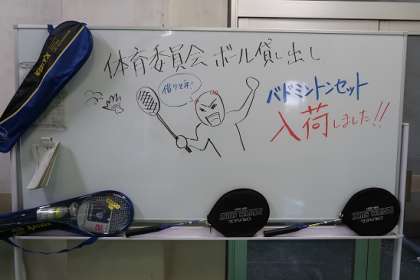 体育委員会 ボール貸し出し
借りてネ!
バドミントンセット
入荷しました!!